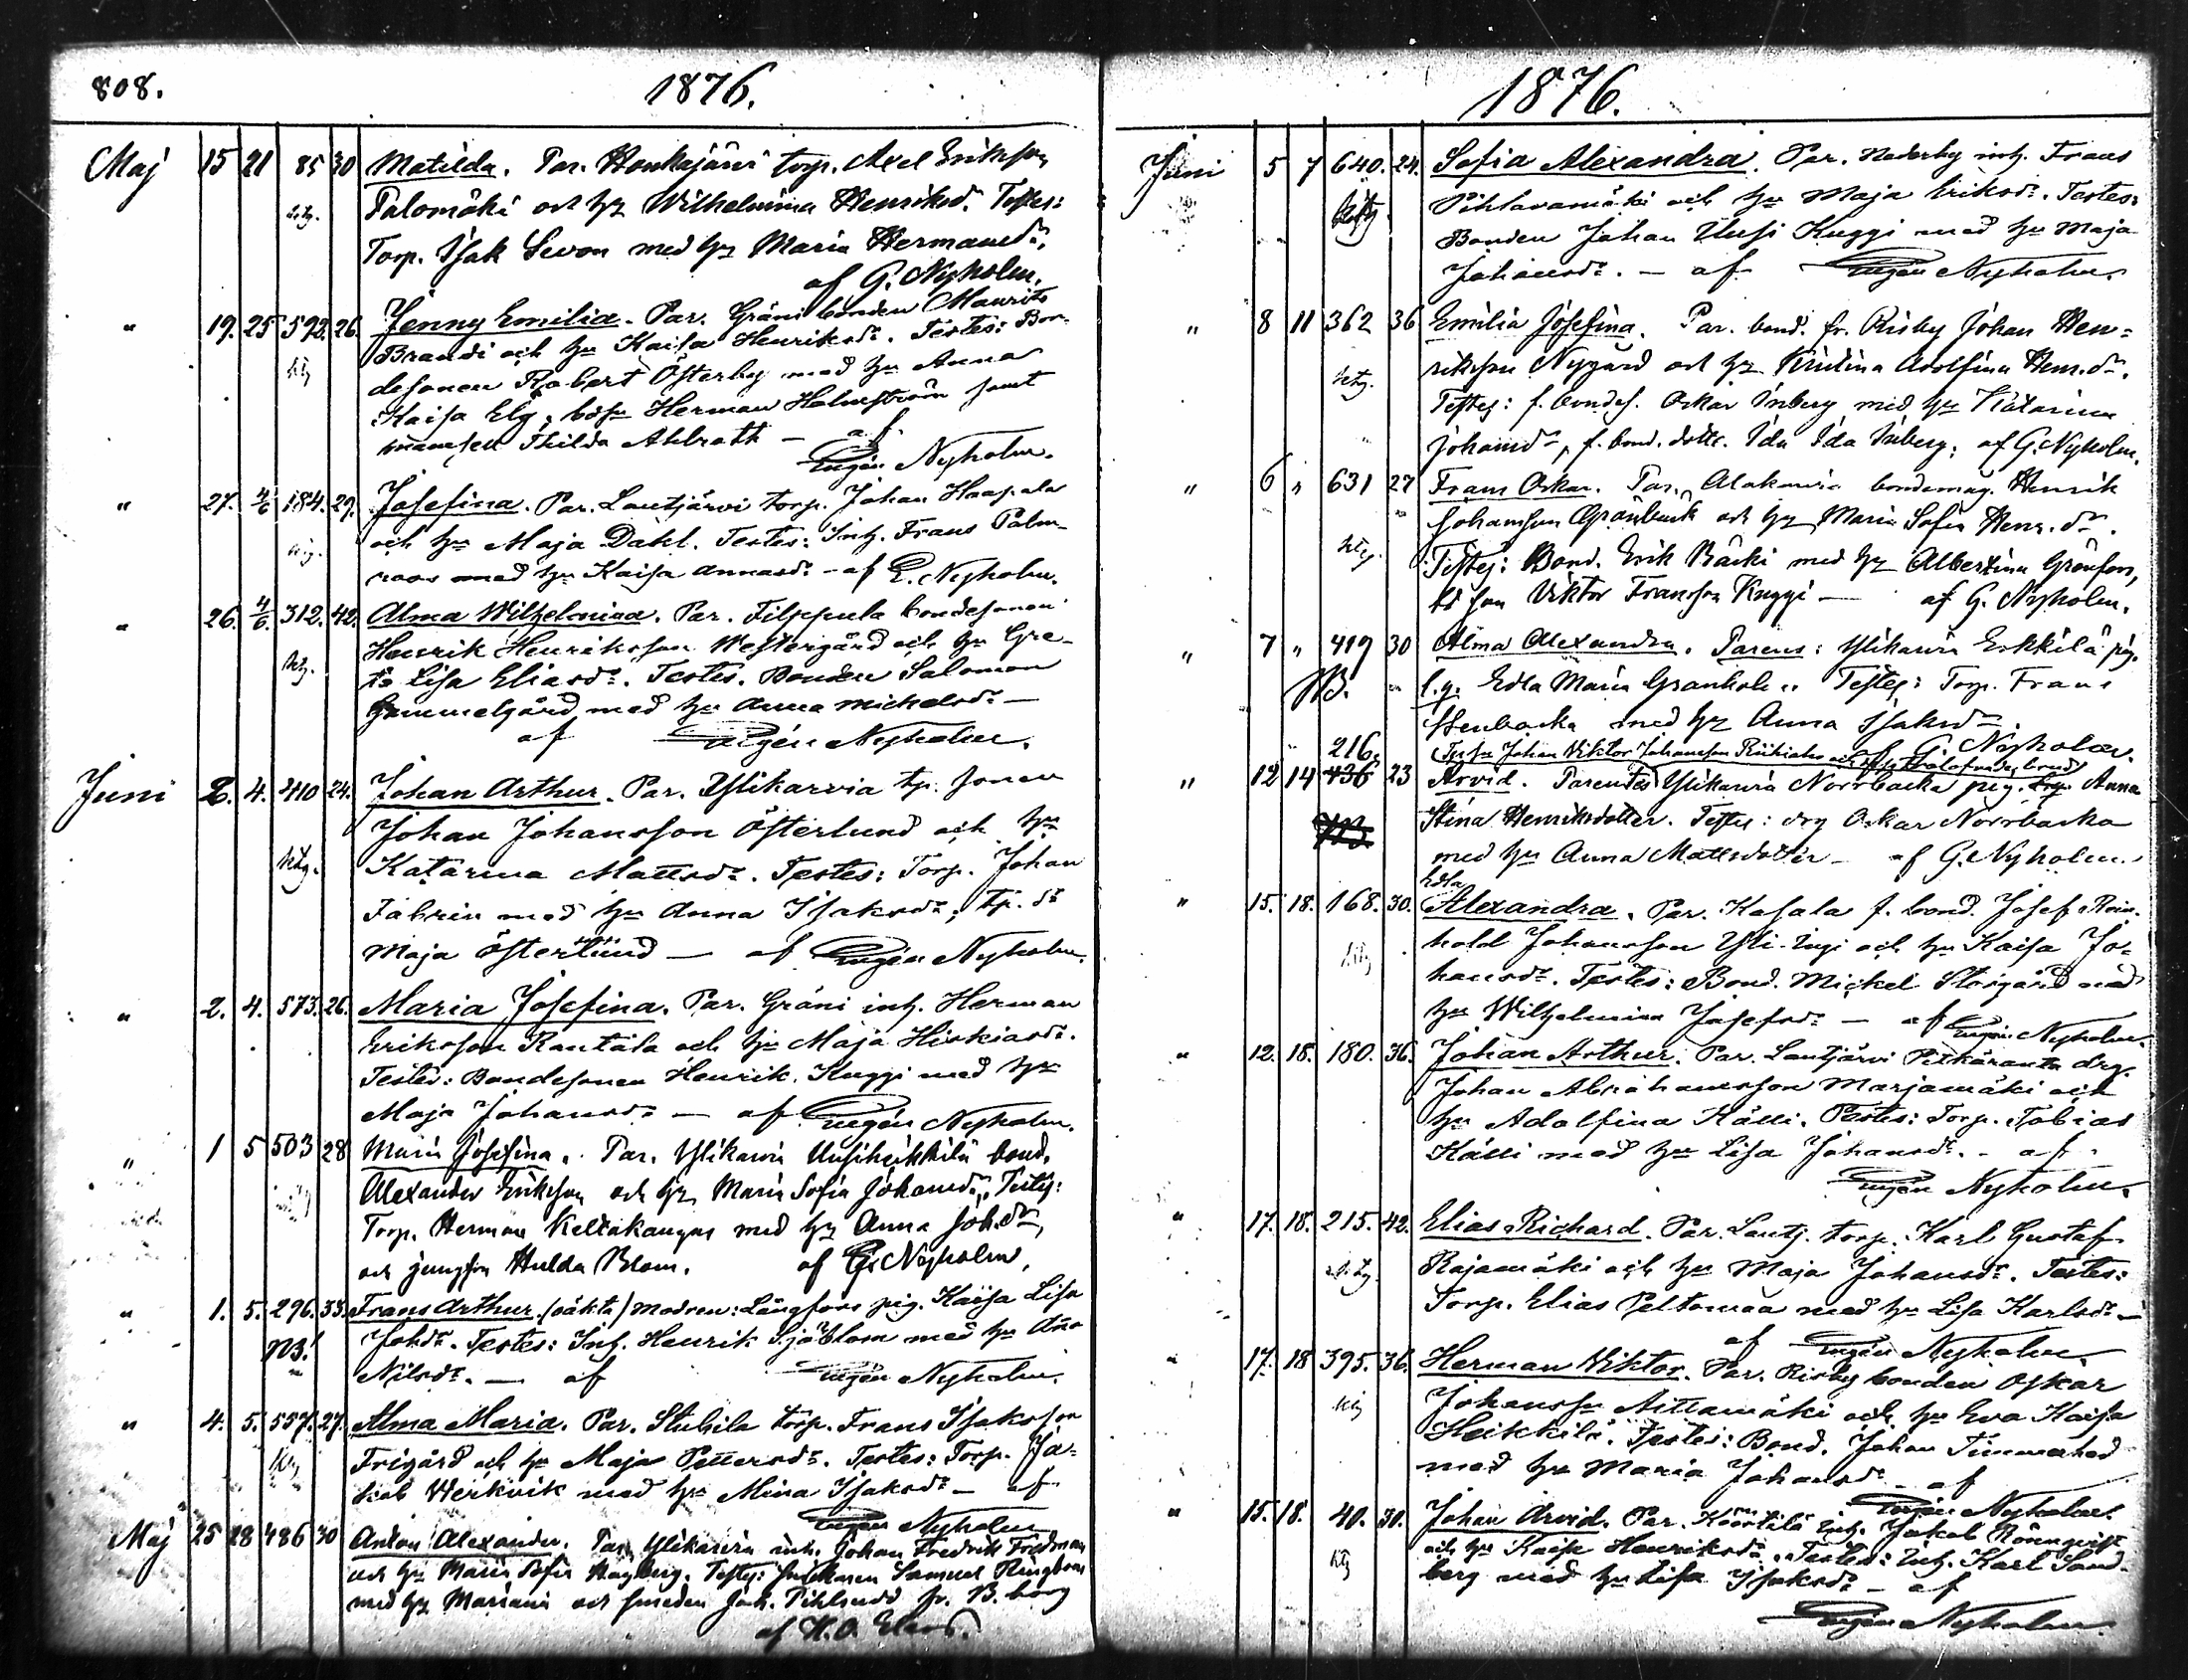 808.
1876.
Maj 15 21 85 30 Matilda. Par. Honkajärvi torp. Axel Eriksson
Palomäki och hu Wilhelmina Henriksd. Testes:
Torp. Isak Sevon med hu Maria Hermansdr.
af G. Nyholm.
" 19. 25 592. 26. Jenny Emilia. Par. Gräni bonden Maurits
Brandi och hu Kaisa Henriksdr. Testes: Bon-
desonen Robert Österby med hu Anna
Kaisa Elg, Herman Holmström samt
mamsell Thilda Ahlroth — af
Eugén Nyholm.
" 27. 4/6 184. 29. Josefina. Par. Lautjärvi torp. Johan Haapala
och hu Maja Dahl. Testes: Inh. Frans Palm-
roos med hu Kaisa Annasdr. - af E. Nyholm.
" 26. 4/6. 312. 42. Alma Wilhelmina. Par. Filppula bondesonen
Henrik Henriksson Westergård och hu Gre-
ta Lisa Eliasdr. Testes. Bonden Salomon
Gammelgård med hu Anna Michelsdr. —
af Eugén Nyholm.
Juni 2. 4. 410 24. Johan Arthur. Par. Ylikarvia tp. sonen
Johan Johansson Österlund och hu
Katarina Mattsdr. Testes: Torp. Johan
Fabrin med hu Anna Isaksdr., tp. dr
Maja Österlund — af Eugén Nyholm.
" 2. 4. 573. 26. Maria Josefina. Par. Gräni inh. Herman
Eriksson Rautala och hu Maja Hiskiasdr.
Testes: Bondesonen Henrik Kuggi med hu
Maja Johansdr. — af Eugén Nyholm.
" 1 5 503 28 Maria Josefina. Par. Ylikarvia Uusiheikkilä bond.
Alexander Eriksson och hu Maria Sofia Johansdr. Testes:
Torp. Herman Keltakangas med hu Anna Joh.dr,
och jungfru Hulda Blom. af G. Nyholm.
" 1. 5. 296. 33. Frans Arthur (oäkta) modren: Långfors pig. Kaisa Lisa
NB! Johdr. Testes: Inh. Henrik Sjöblom med hu
Nilsdr. — af Eugén Nyholm.
" 4. 5. 557. 27. Alma Maria. Par. Stubila torp. Frans Isaksson
Frigård och hu Maja Pettersdr. Testes: Torp. Ja-
kob Werkvik med hu Mina Isaksdr — af
Eugén Nyholm
Maj 25 28 486 30 Anton Alexander. Par. Ylikarvia inh. Johan Fredrik Fredman
och hu Maria Sofia Hagberg. Testes: Samuel Ringbom
med hu Mariana och smeden Joh. Pihlsudd fr. B. borg
af K. O.
1876.
Juni 5 7 640. 24. Sofia Alexandra. Par. Haderby inh. Frans
Pihlavamäki och hu Maja Eriksdr. Testes:
Bonden Johan Uusi Kuggi med hu Maja
Johansdr. — af Eugén Nyholm.
" 8 11 362 36 Emilia Josefina. Par. bond. fr. Risby Johan Hen-
riksson Nygård och hu Kristina Adolfina Henr.dr.
Testes: f. bondes. Oskar Inberg med hu Katarina
Johansdr, f. bond. dottr. Ida Ida Inberg. af G. Nyholm.
" 6 " 631 27 Frans Oskar. Par. Alakarvia bondemåg. Henrik
Johansson Grönback och hu Maria Sofia Henr.dr.
Testes: Bond. Erik Bäcki med hu Albertina Grönfors,
bd son Viktor Fransson Kuggi — af G. Nyholm.
" 7 " 419 30 Alma Alexandra. Parens: Ylikarvia Erkkilä pig.
NB. Edla Maria Granholm. Testes: Torp. Frans
Stenbacka med hu Anna Isaksdr.
af G. Nyholm.
216.
" 12 14 436 23 Arvid. Parentes Ylikarvia Norrbacka pig. Anna
NB. Stina Henriksdotter. Testes: drg Oskar Norrbacka
med hu Anna Mattsdotter — af G. Nyholm.
Edla
" 15. 18. 168. 30. Alexandra. Par. Kasala f. bond. Josef Rein-
hold Johansson Yli-Ingi och hu Kaisa Jo-
hansdr. Testes: Bond. Mickel Storgård med
hu Wilhelmina Josefsdr — af Eugén Nyholm.
" 12. 18. 180. 36. Johan Arthur. Par. Lautjärvi Pitkäranta drg.
Johan Abrahamsson Marjamäki och
hu Adolfina Källi. Testes: Torp. Tobias
Källi med hu Lisa Johansdr. - af
Eugén Nyholm.
" 17. 18. 215. 42. Elias Richard. Par. Lautj. torp. Karl Gustaf
Rajamäki och hu Maja Johansdr. Testes:
Torp. Elias Peltomaa med hu Lisa Karlsdr —
af Eugén Nyholm.
" 17. 18 395. 36. Herman Viktor. Par. Risby bonden Oskar
Johansson Aittamäki och hu Eva Kaisa
Heikkilä. Testes: Bond. Johan Timmerhed
med hu Maria Johansdr — af
Eugén Nyholm.
" 15. 18. 40. 30. Johan Arvid. Par. Köörtilä inh. Jakob Rönnqvist
och hu Kaisa Henriksdr. Testes: Inh. Karl Sand-
berg med hu Lisa Isaksdr — af
Eugén Nyholm.